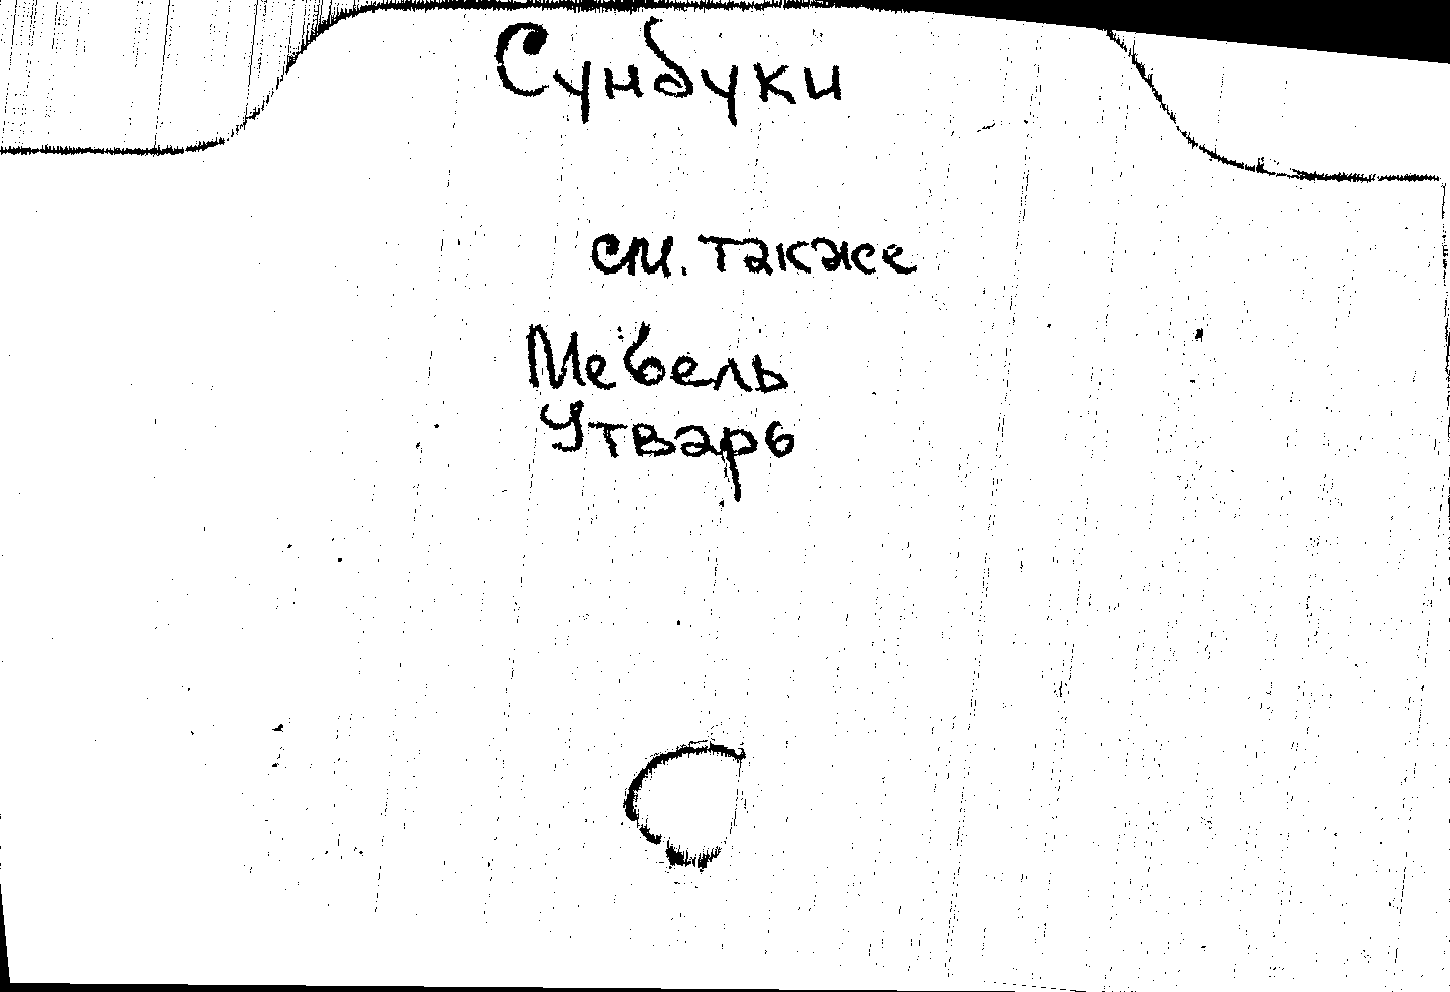 Сундуки
см. также
Мебель
Утварь